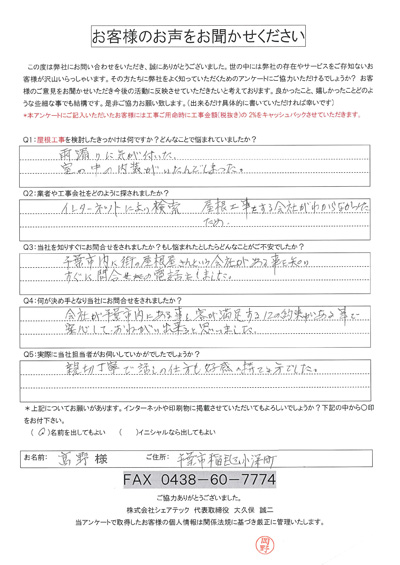 お客様のお声をお聞かせください
この度は弊社にお問い合わせをいただき、誠にありがとうございました。世の中には弊社の存在やサービスをご存知ないお
客様が沢山いらっしゃいます。その方たちに弊社をよく知っていただくためのアンケートにご協力いただけるでしょうか? お客
様のご意見をお聞かせいただき今後の活動に反映させていただきたいと考えております。良かったこと、嬉しかったことどのよ
うな些細な事でも結構です。是非ご協力お願い致します。(出来るだけ具体的に書いていただければ幸いです)
*本アンケートにご記入いただいたお客様には工事ご用命時に工事金額(税抜き)の2%をキャッシュバックさせていただきます。
Q1:屋根工事を検討したきっかけは何ですか?どんなことで悩まれていましたか?
雨漏りに気が付いた、
室の中の内装がいたんでしまった。
Q2:業者や工事会社をどのように探されましたか?
インターネットにより検索 屋根工事をする会社がわからなかった
ため
Q3:当社を知りすぐにお問合せをされましたか?もし悩まれたとしたらどんなことがご不安でしたか?
千葉市内に街の屋根屋さんという会社がある事を知り
すぐに問合せの電話をしました。
Q4:何が決め手となり当社にお問合せをされましたか?
会社が千葉市内にある事と客が満足する12の約束がある事で
安心しておねがい出来ると思いました。
Q5:実際に当社担当者がお伺いしていかがでしたでしょうか?
親切丁寧で話しの仕方も好感が持てる方でした。
*上記についてお願いがあります。インターネットや印刷物に掲載させていただいてもよろしいでしょうか?下記の中から〇印
をお付下さい。
(〇)名前を出してもよい ( )イニシャルなら出してもよい
お名前: 髙野 様 ご住所: 千葉市稲毛区小深町
FAX 0438-60-7774
ご協力ありがとうございました。
株式会社シェアテック 代表取締役 大久保 誠二
当アンケートで取得したお客様の個人情報は関係法規に基づき厳正に管理いたします。